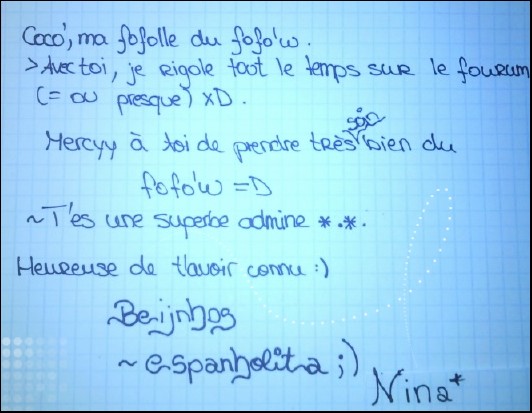 Coco', ma fofolle du fofo'w.
>Avec toi, je rigole tout le temps sur le fourum
(= ou presque) xD.
Mercyy à toi de prendre très soin bien du
fofo'w =D
~T'es une superbe admine *.*.
Heureuse de t'avoir connu :)
Beijnhos
~espanholita ;)
Nina*